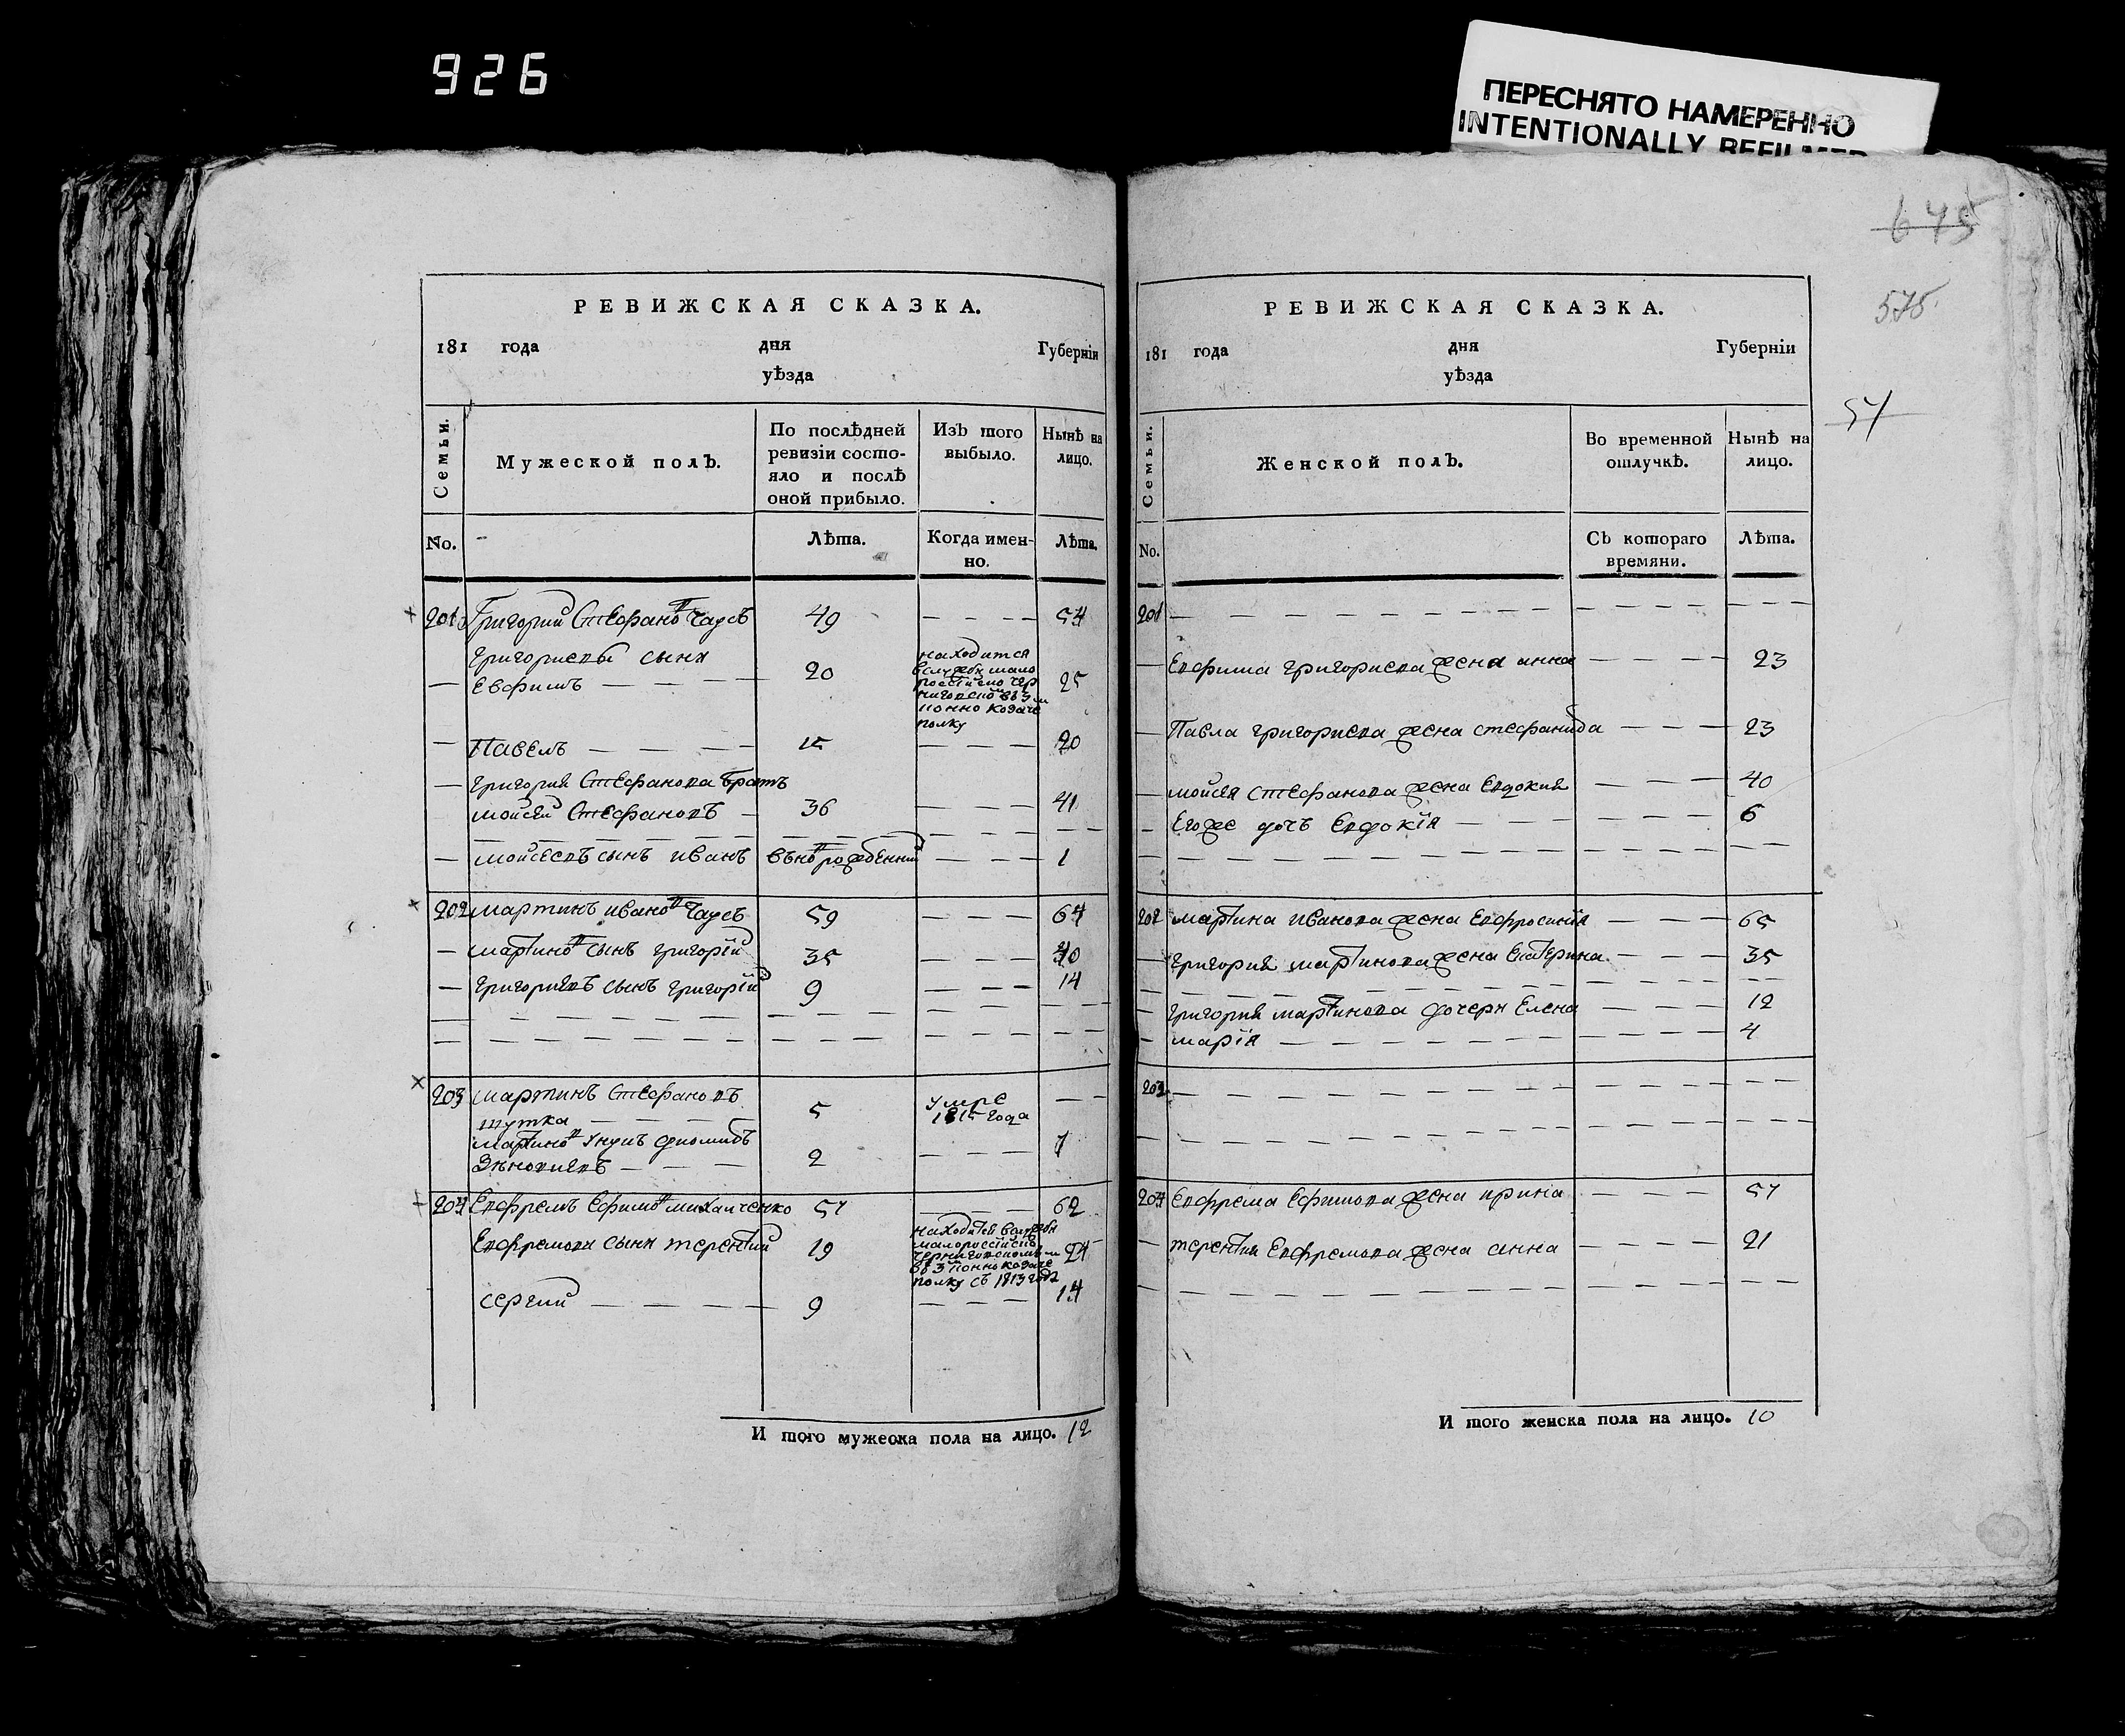 926
ПЕРЕСНЯТО НАМЕРЕННО
INTENTIONALLY REFILMED
645
575
54
РЕВИЖСКАЯ СКАЗКА.
181 года дня Губерніи
уѣзда
Семьи. Мужеской полъ. По послѣдней ревизіи состо-
яло и послѣ
оной прибыло. Изъ того
выбыло. Нынѣ на
лицо.
No. Лѣта. Когда имен-
но. Лѣта.
201 Григорий Стефановъ Чаусъ 49 54
Григориевы сыни
Евфимъ 20 находится
в службѣ мало
россійско чер
ниговско въ 3 м
конно козаче
полку 25
Павелъ 15 20
Григория Стефанова братъ
Мойсей Стефановъ 36 41
Мойсеевъ сынъ Иванъ вѣнов рожденний 1
202 Мартинъ Ивановъ Чаусъ 59 64
Мартиновъ сынъ Григорій 35 40
Григориевъ сынъ Григорій 9 14
203 Мартинъ Стефановъ
Шутка 5 умре
1815 года
Мартиновъ унукъ Диомидъ
Зѣновиевъ 2 7
204 Евфремъ Ефимовъ Михалченко 57 62
Евфремови сыни Терентий 19 находится в службѣ
малоросійскъ
черниговскомъ
въ 3 конно козаче
полку съ 1813 года 24
Сергий 9 14
И того мужеска пола на лицо. 12
РЕВИЖСКАЯ СКАЗКА.
181 года дня Губерніи
уѣзда
Семьи. Женской полъ. Во временной
отлучкѣ. Нынѣ на
лицо.
No. Съ котораго
времяни. Лѣта.
201
Евфима Григориева жена Анна 23
Павла Григориева жена Стефанида 23
Мойсея Стефанова жена Евдокия 40
Его же дочь Евдокія 6
202 Мартина Иванова жена Евфросинія 65
Григория Мартинова жена Екатерина 35
Григория Мартинова дочери Елена 12
Марія 4
203
204 Евфрема Ефимова жена Ирина 57
Терентия Евфремова жена Анна 21
И того женска пола на лицо. 10